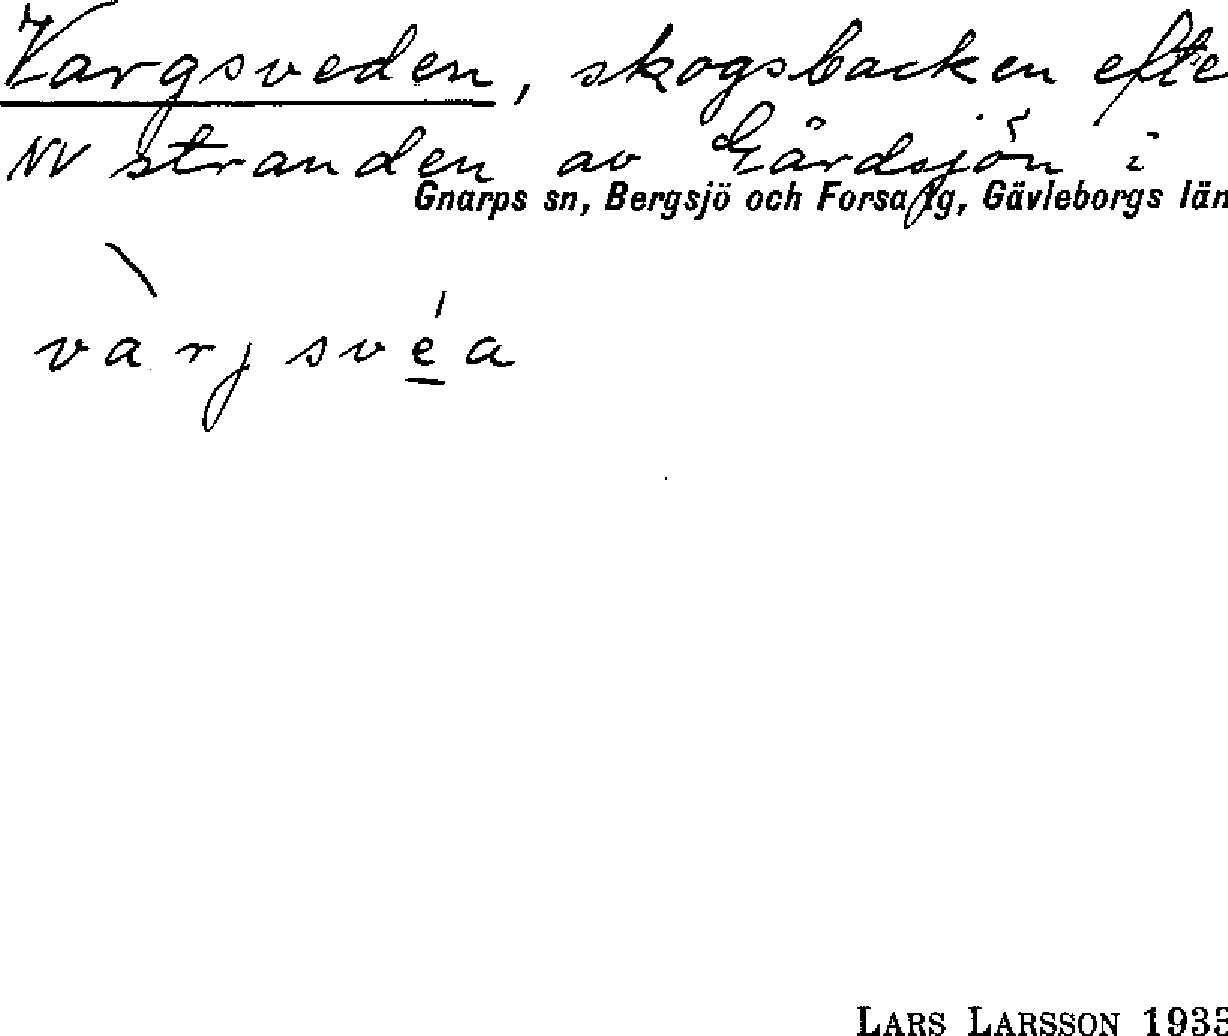 Vargsveden, skogsbacken efte
NV stranden av Gårdsjön i
Gnarps sn, Bergsjö och Forsa tg, Gävleborgs län
vàrjsvéa
LARS LARSSON 1933